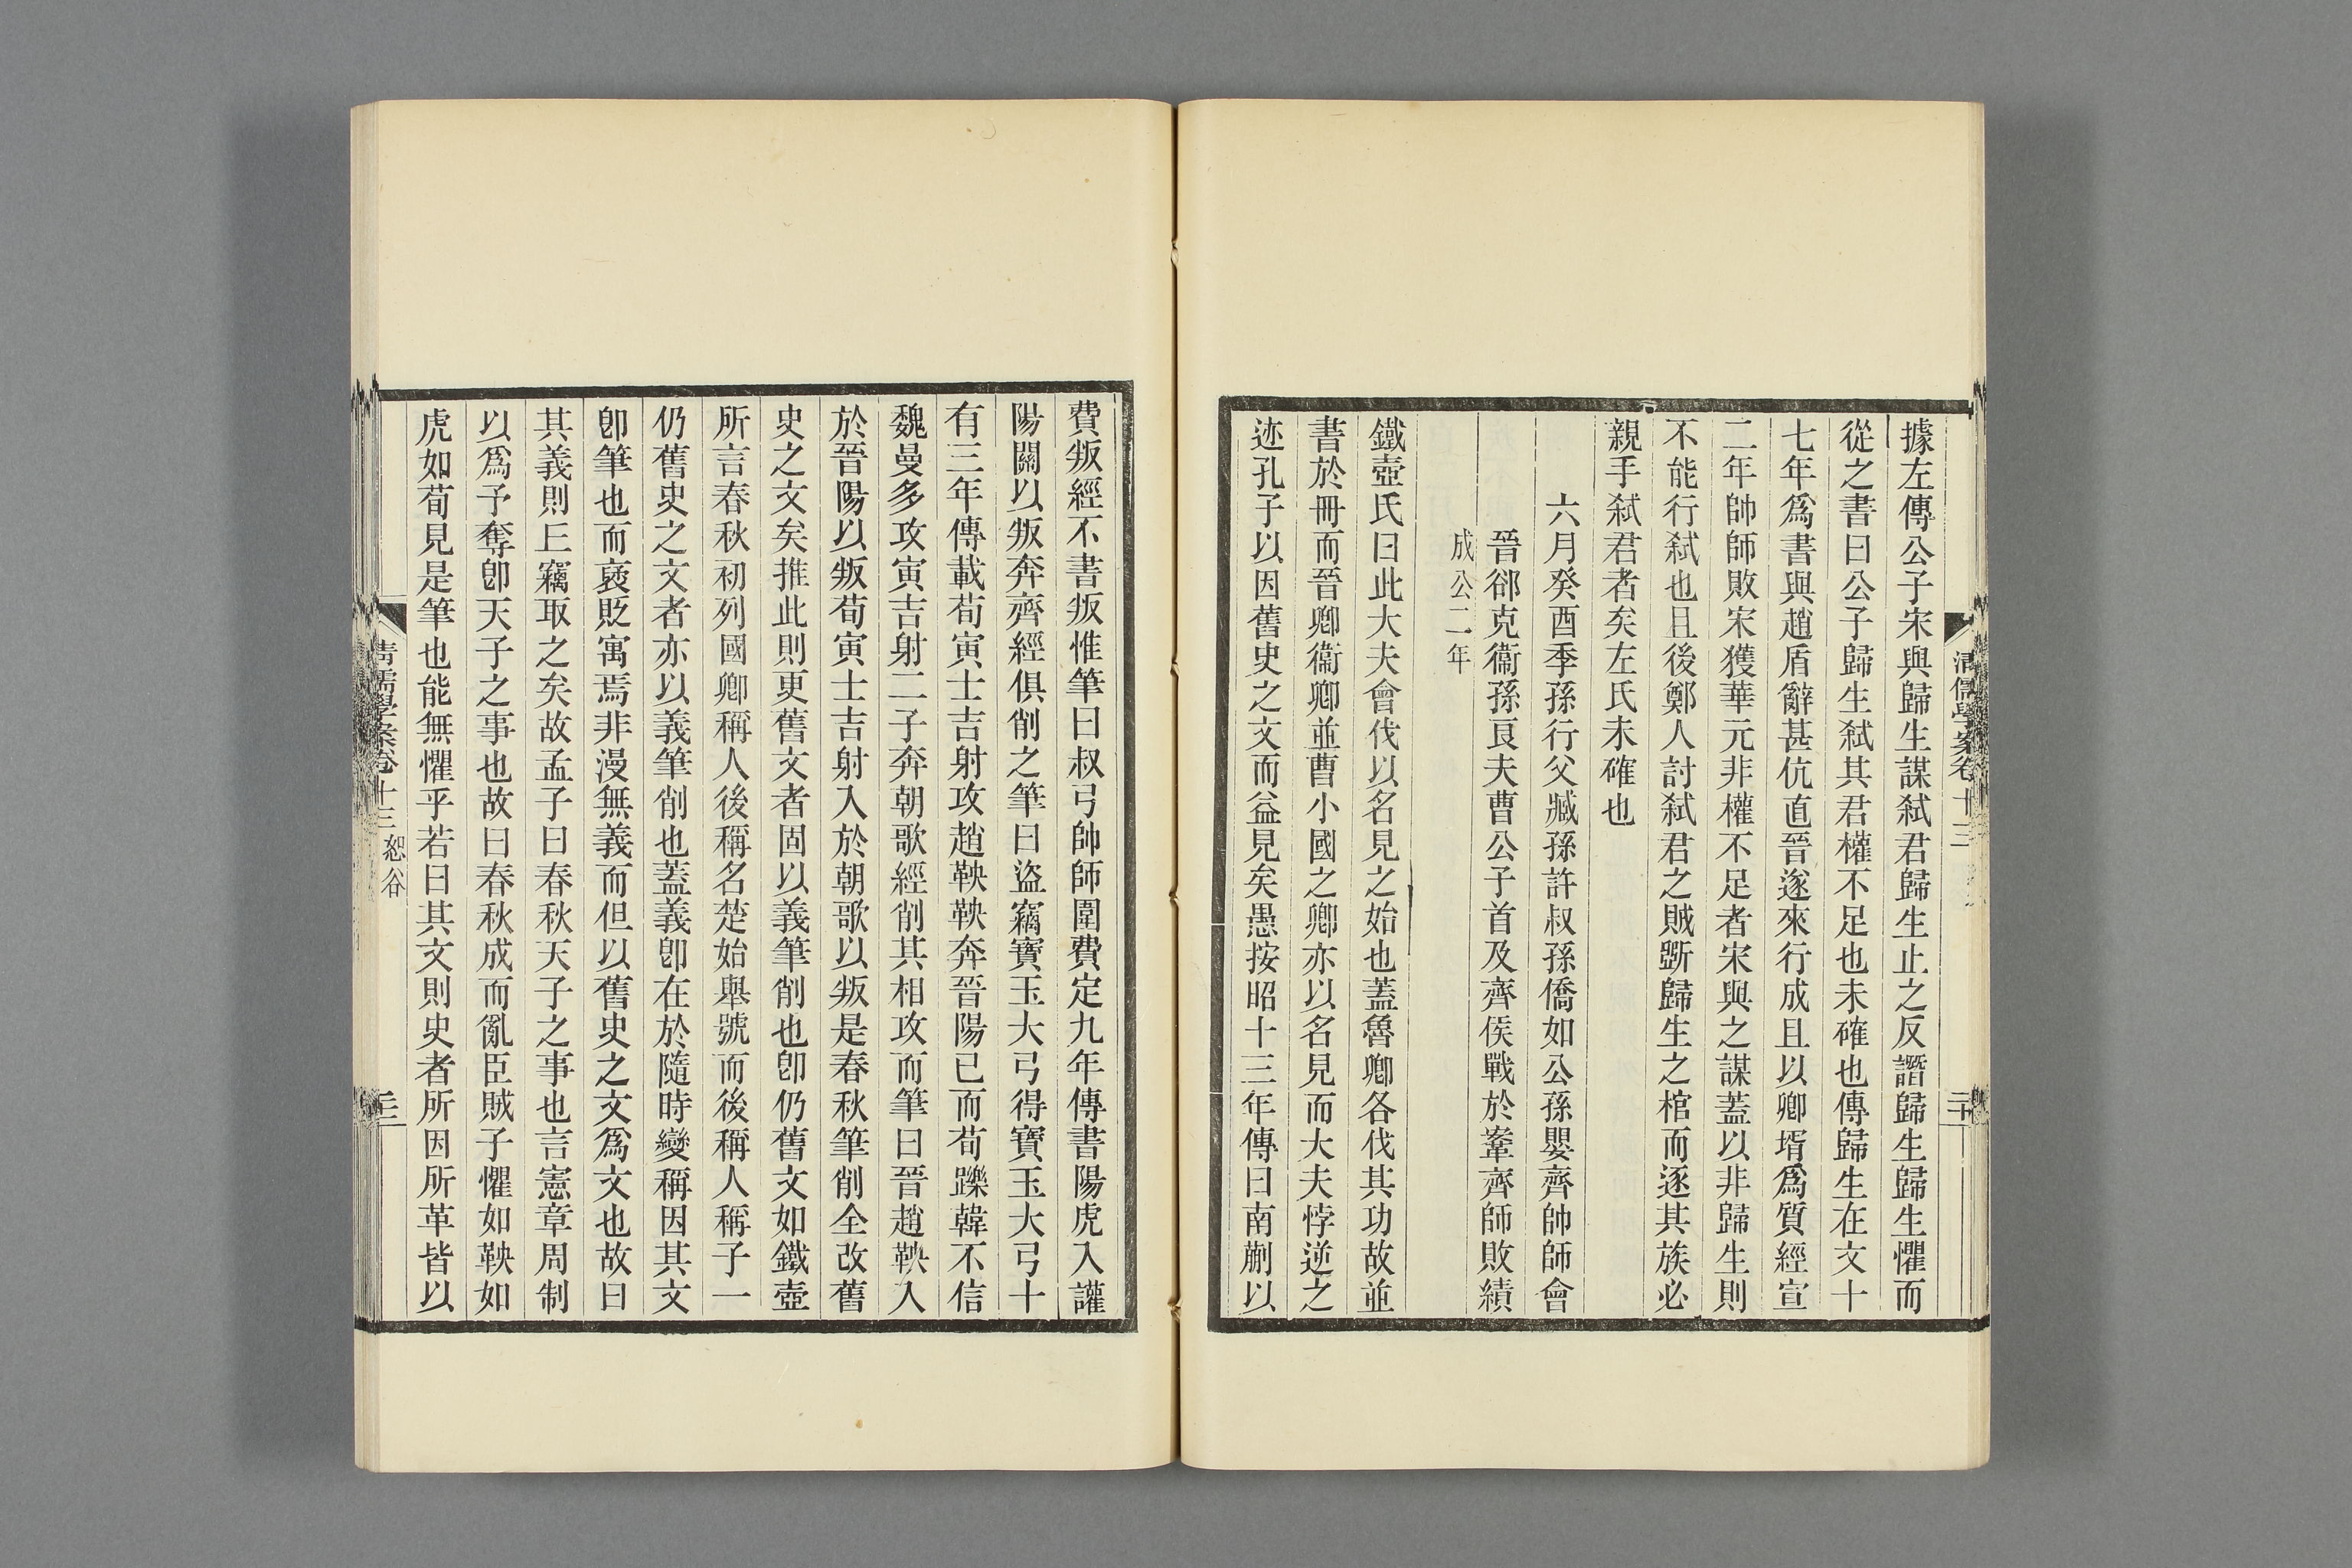 據左傳公子宋與歸生謀弑君歸生止之反譖歸生歸生懼而
從之書曰公子歸生弑其君權不足也未確也傳歸生在文十
七年爲書與趙盾辭甚伉直晉遂來行成且以卿壻爲質經宣
二年帥師敗宋獲華元非權不足者宋與之謀蓋以非歸生則
不能行弑也且後鄭人討弑君之賊斲歸生之棺而逐其族必
親手弑君者矣左氏未確也
六月癸酉季孫行父臧孫許叔孫僑如公孫嬰齊帥師會
晉郤克衞孫良夫曹公子首及齊侯戰於鞌齊師敗績
成公二年
鐵壺氏曰此大夫會伐以名見之始也蓋魯卿各伐其功故並
書於冊而晉卿衞卿並曹小國之卿亦以名見而大夫悖逆之
迹孔子以因舊史之文而益見矣愚按昭十三年傳曰南蒯以
清儒學案卷十三
費叛經不書叛惟筆曰叔弓帥師圍費定九年傳書陽虎入讙
陽關以叛奔齊經俱削之筆曰盜竊寶玉大弓得寶玉大弓十
有三年傳載荀寅士吉射攻趙鞅鞅奔晉陽已而荀躒韓不信
魏曼多攻寅吉射二子奔朝歌經削其相攻而筆曰晉趙鞅入
於晉陽以叛荀寅士吉射入於朝歌以叛是春秋筆削全改舊
史之文矣推此則更舊文者固以義筆削也卽仍舊文如鐵壺
所言春秋初列國卿稱人後稱名楚始舉號而後稱人稱子一
仍舊史之文者亦以義筆削也蓋義卽在於隨時變稱因其文
卽筆也而襃貶寓焉非漫無義而但以舊史之文爲文也故曰
其義則丘竊取之矣故孟子曰春秋天子之事也言憲章周制
以爲予奪卽天子之事也故曰春秋成而亂臣賊子懼如鞅如
虎如荀見是筆也能無懼乎若曰其文則史者所因所革皆以
清儒學案卷十三 恕谷